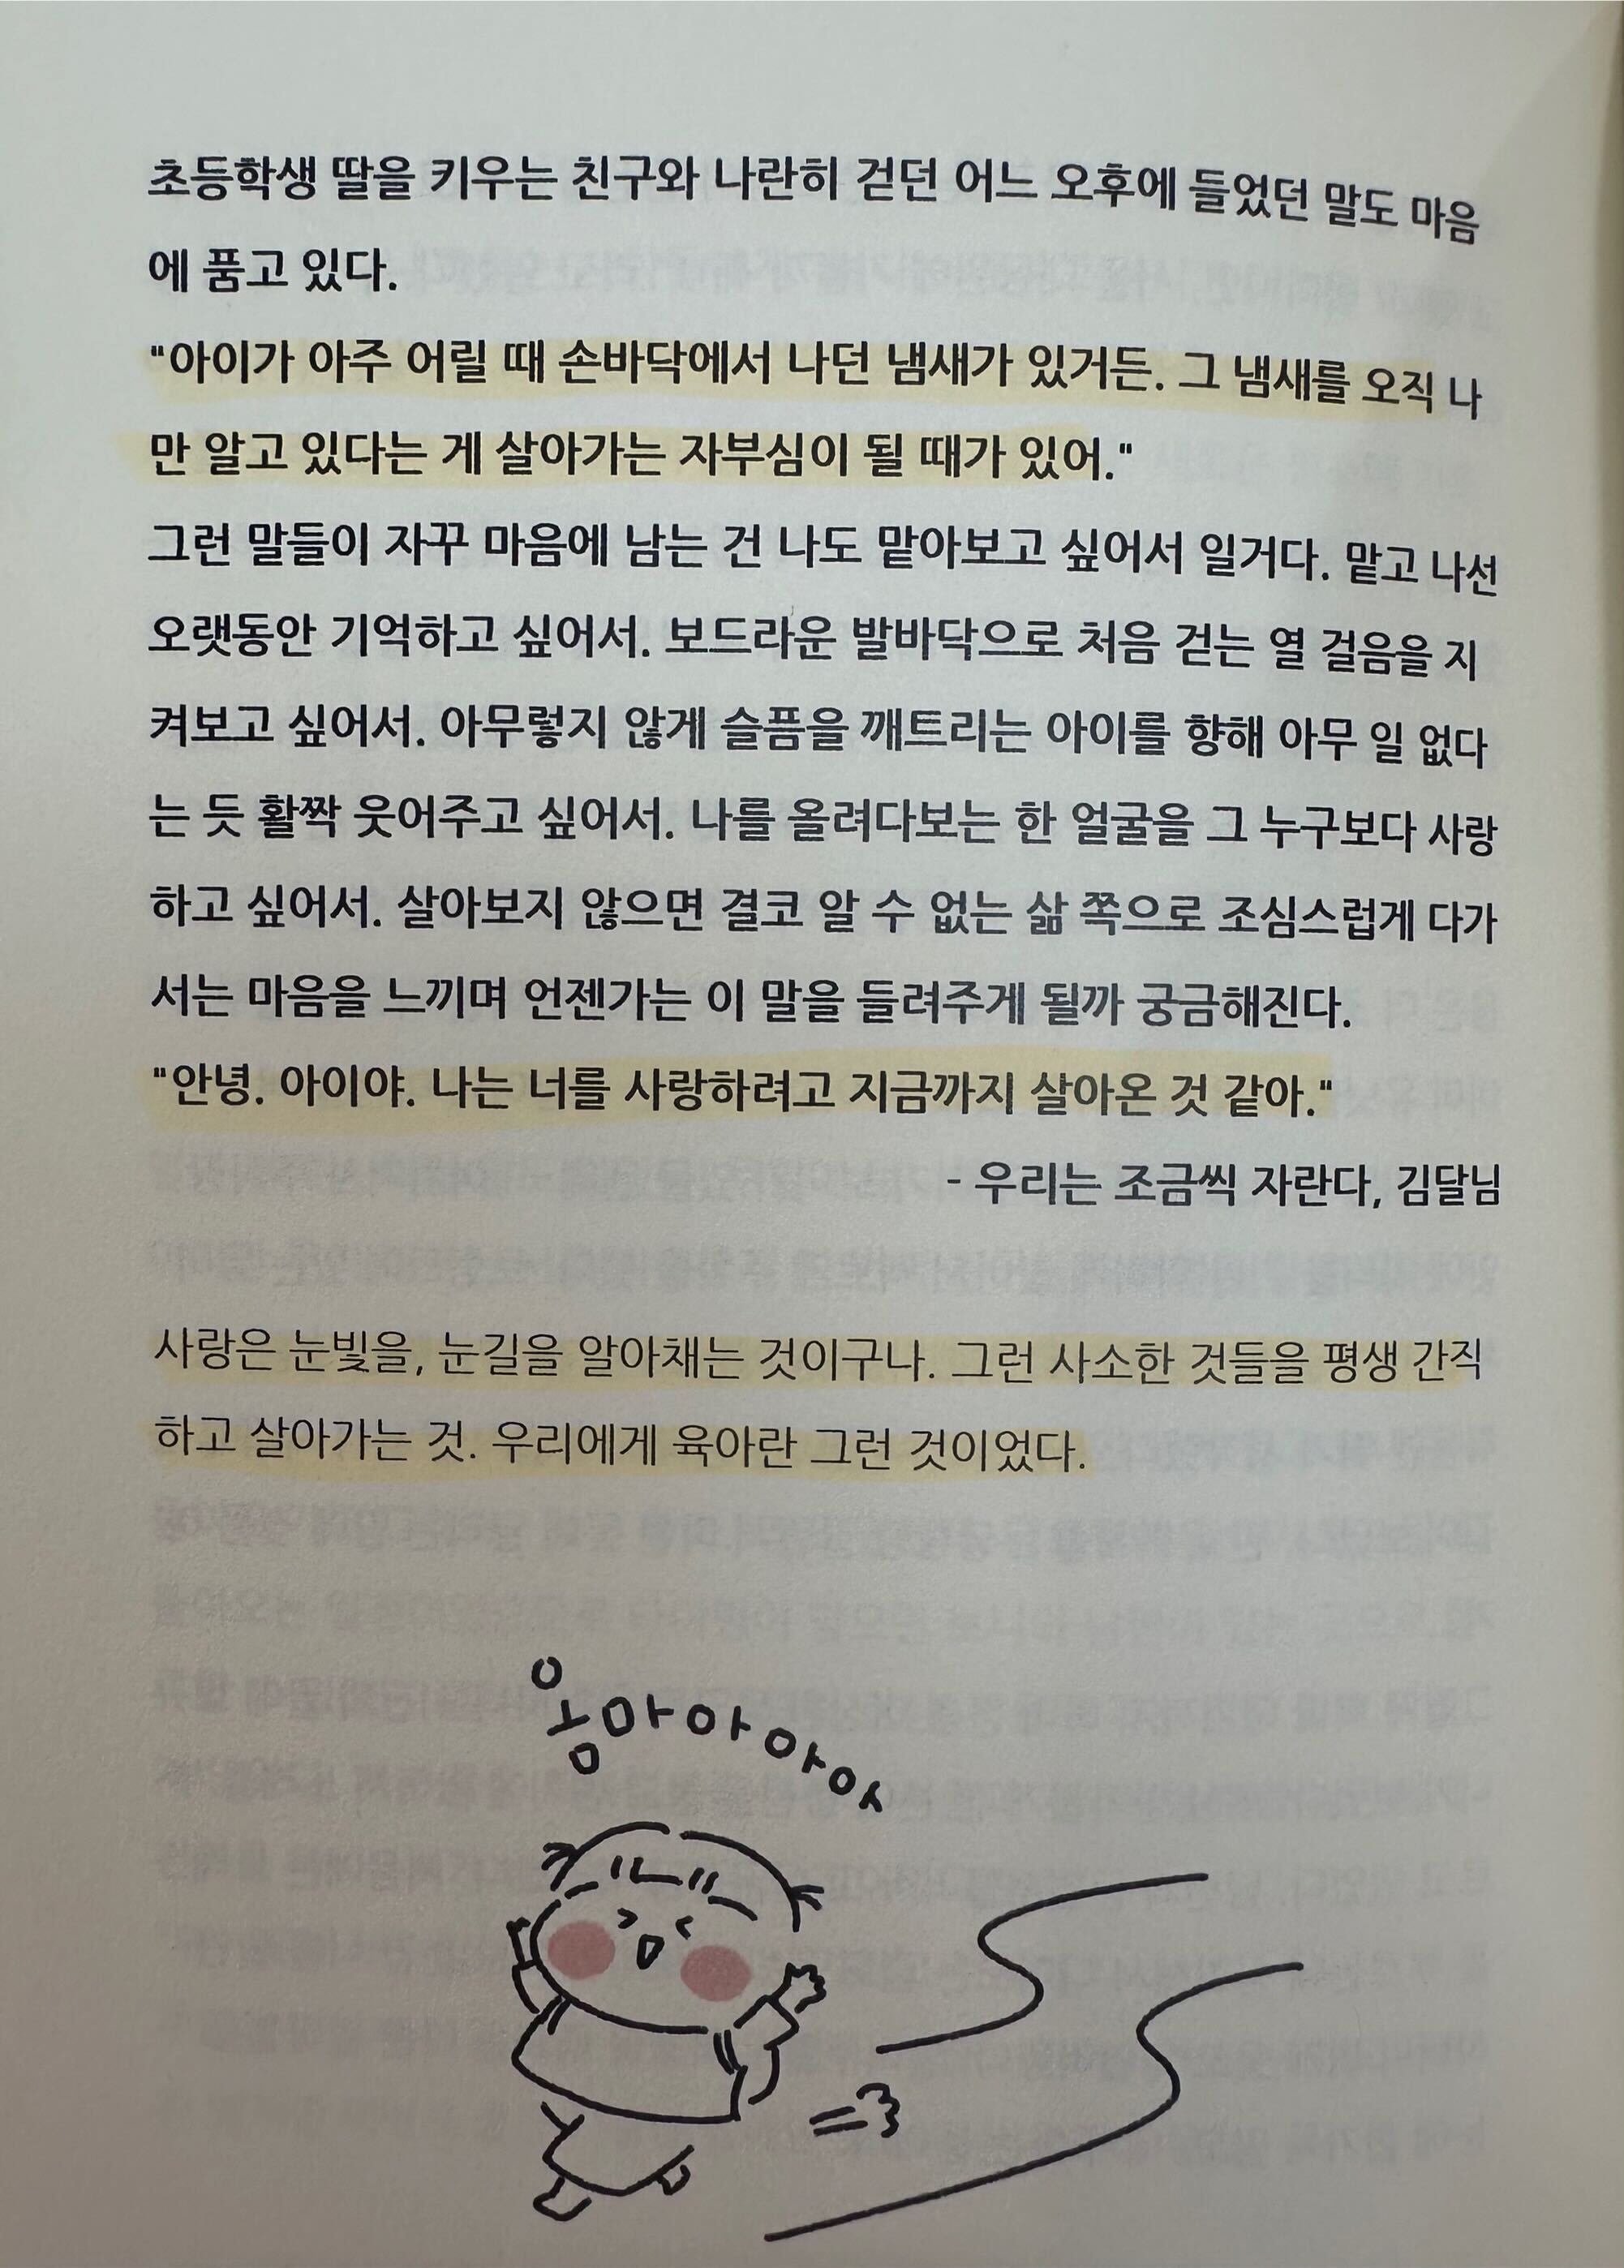 초등학생 딸을 키우는 친구와 나란히 걷던 어느 오후에 들었던 말도 마음
에 품고 있다.
"아이가 아주 어릴 때 손바닥에서 나던 냄새가 있거든. 그 냄새를 오직 나
만 알고 있다는 게 살아가는 자부심이 될 때가 있어."
그런 말들이 자꾸 마음에 남는 건 나도 맡아보고 싶어서 일거다. 맡고 나선
오랫동안 기억하고 싶어서. 보드라운 발바닥으로 처음 걷는 열 걸음을 지
켜보고 싶어서. 아무렇지 않게 슬픔을 깨트리는 아이를 향해 아무 일 없다
는 듯 활짝 웃어주고 싶어서. 나를 올려다보는 한 얼굴을 그 누구보다 사랑
하고 싶어서. 살아보지 않으면 결코 알 수 없는 삶 쪽으로 조심스럽게 다가
서는 마음을 느끼며 언젠가는 이 말을 들려주게 될까 궁금해진다.
"안녕. 아이야. 나는 너를 사랑하려고 지금까지 살아온 것 같아."
- 우리는 조금씩 자란다, 김달님
사랑은 눈빛을, 눈길을 알아채는 것이구나. 그런 사소한 것들을 평생 간직
하고 살아가는 것. 우리에게 육아란 그런 것이었다.
옴마아아아